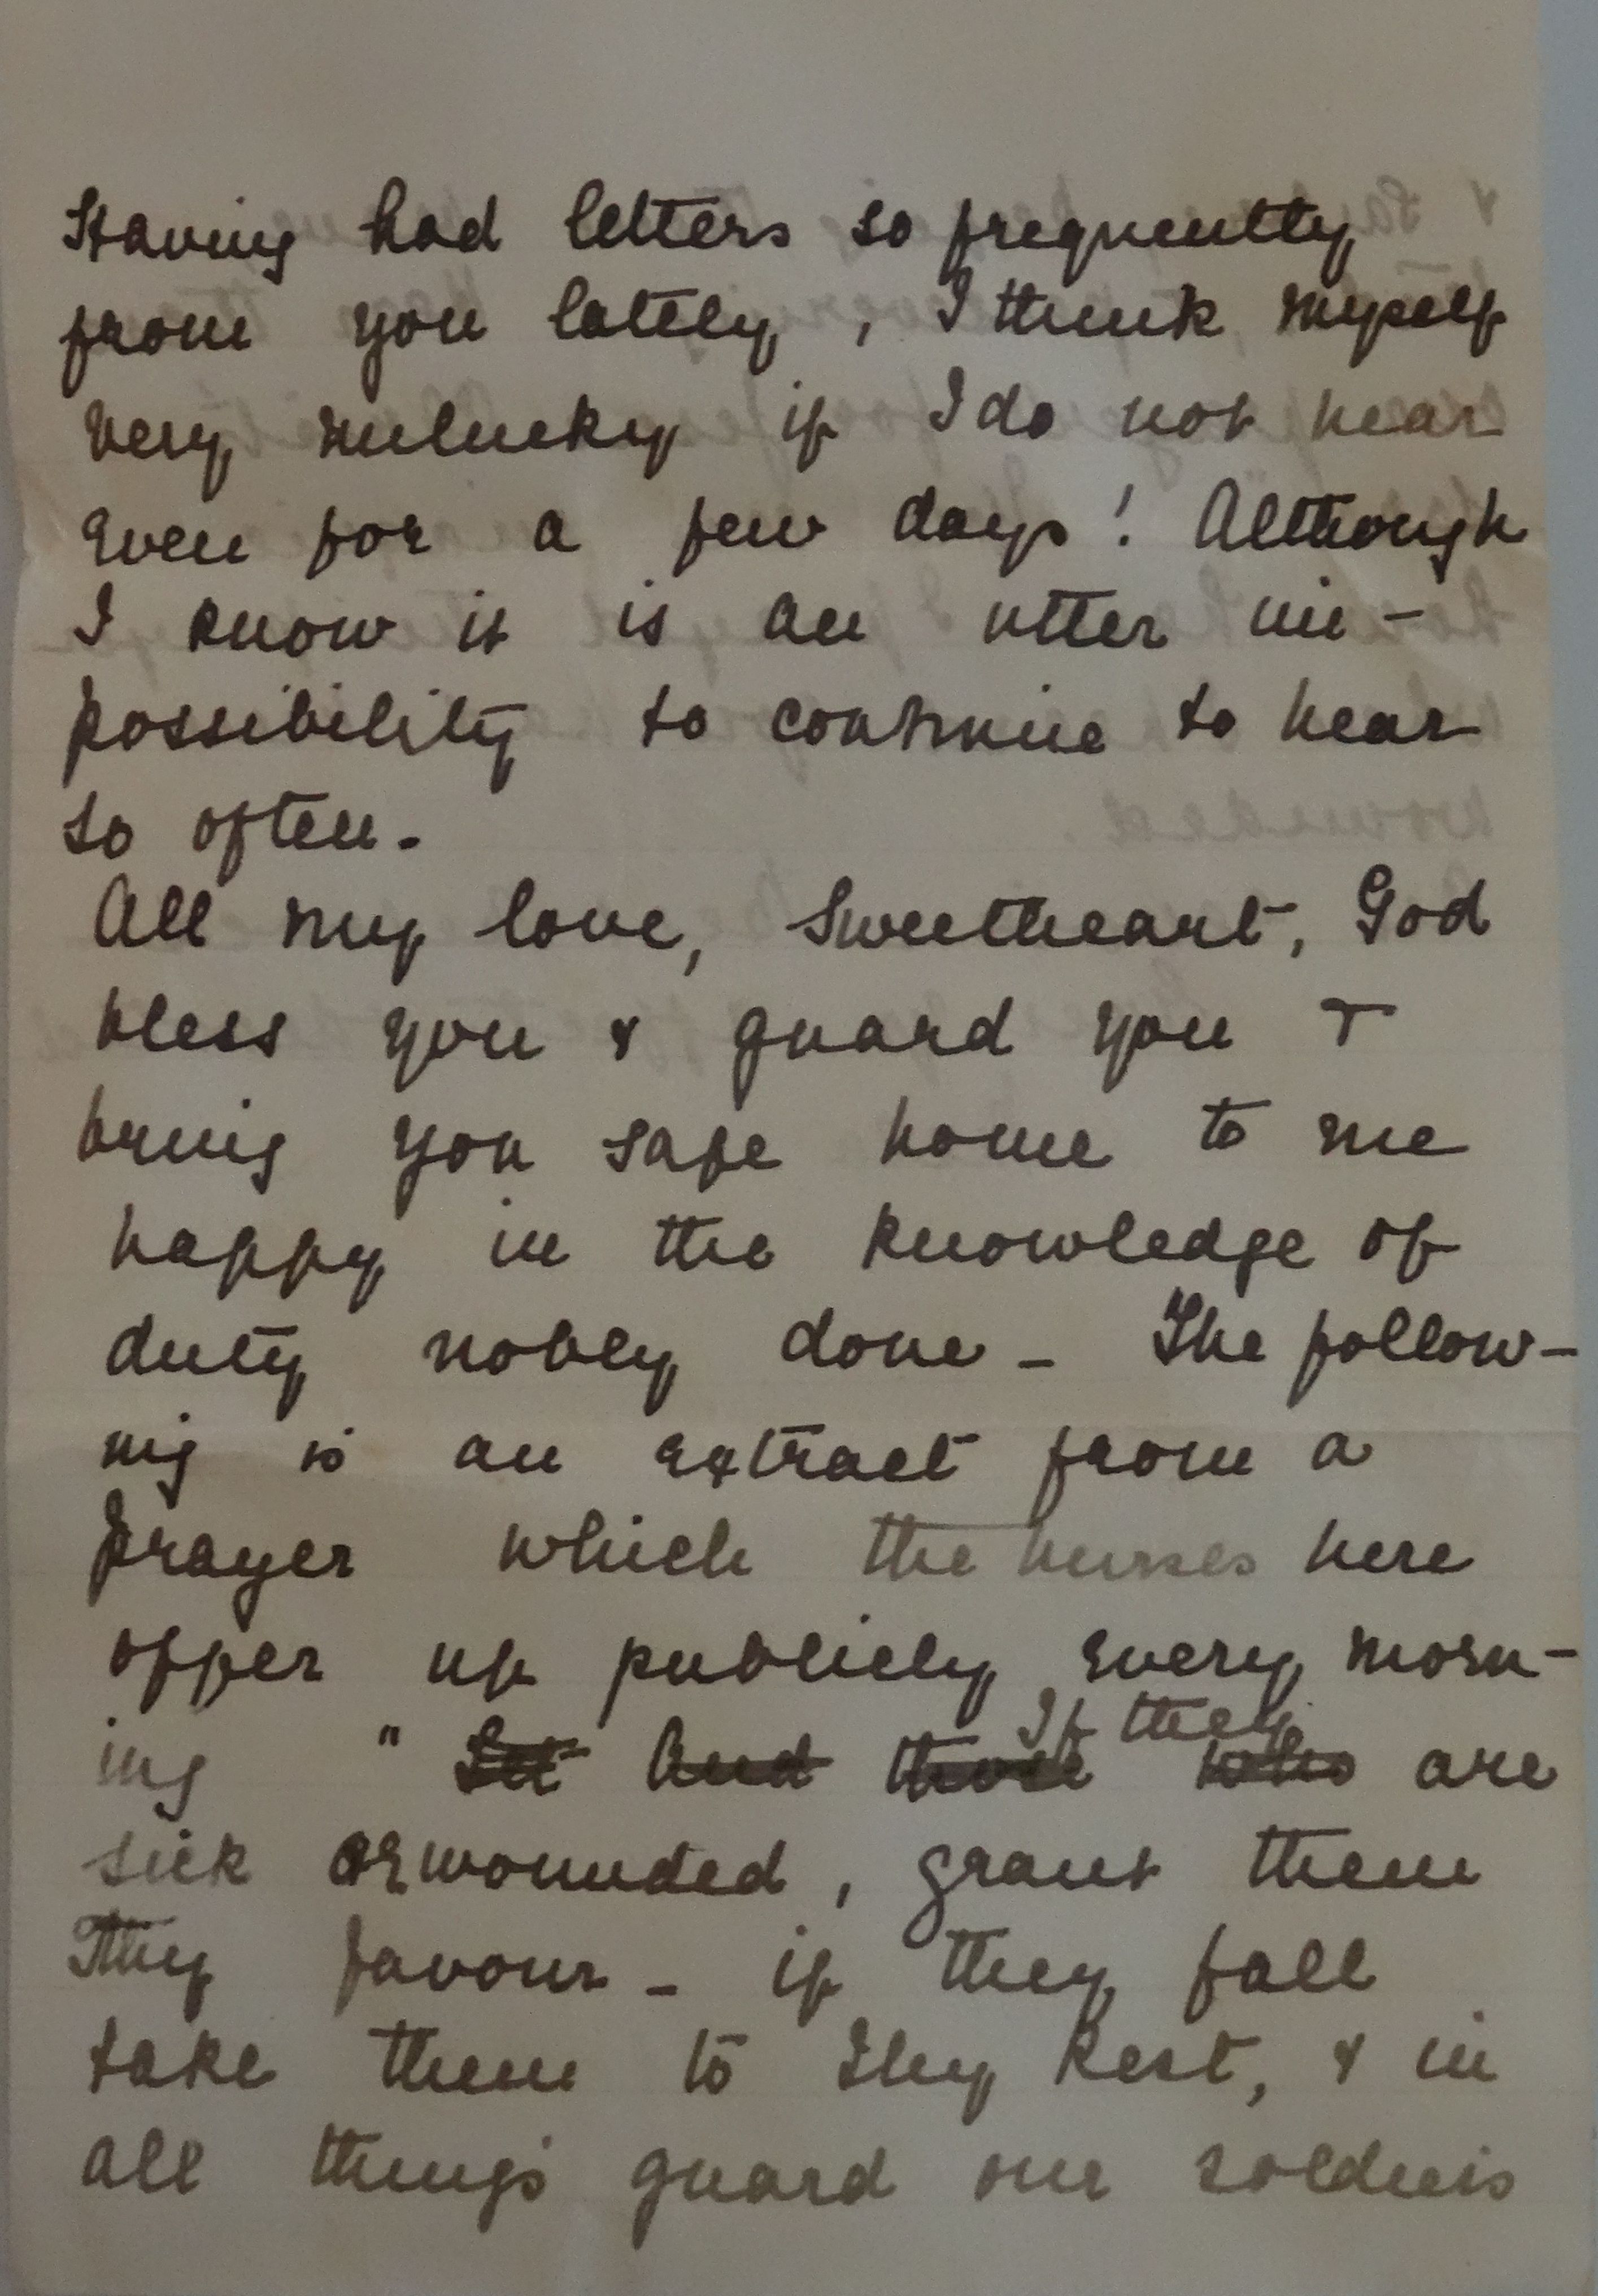 Having had letters so frequently
from you lately, I think myself
very unlucky if I do not hear
even for a few days! Although
I know it is an utter im-
possibility to continue to hear
so often.
All my love, Sweetheart, God
bless you & guard you &
bring you safe home to me
happy in the knowledge of
duty nobly done - The follow-
ing is an extract from a
prayer which the nurses here
offer up publicly every morn-
ing " Let And those who If they are
sick or wounded, grant them
Thy favour - if they fall
take them to Thy Rest, & in
all things guard our soldiers